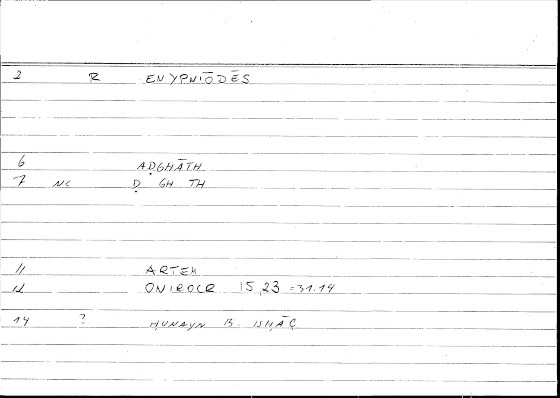 2 R ENYPNIŌDĒS
6 AḌGHĀTH
7 NC Ḍ GH TH
11 ARTEM
12 ONIROCR 15,23 =31.14
14 ? ḤUNAYN B. ISḤĀQ